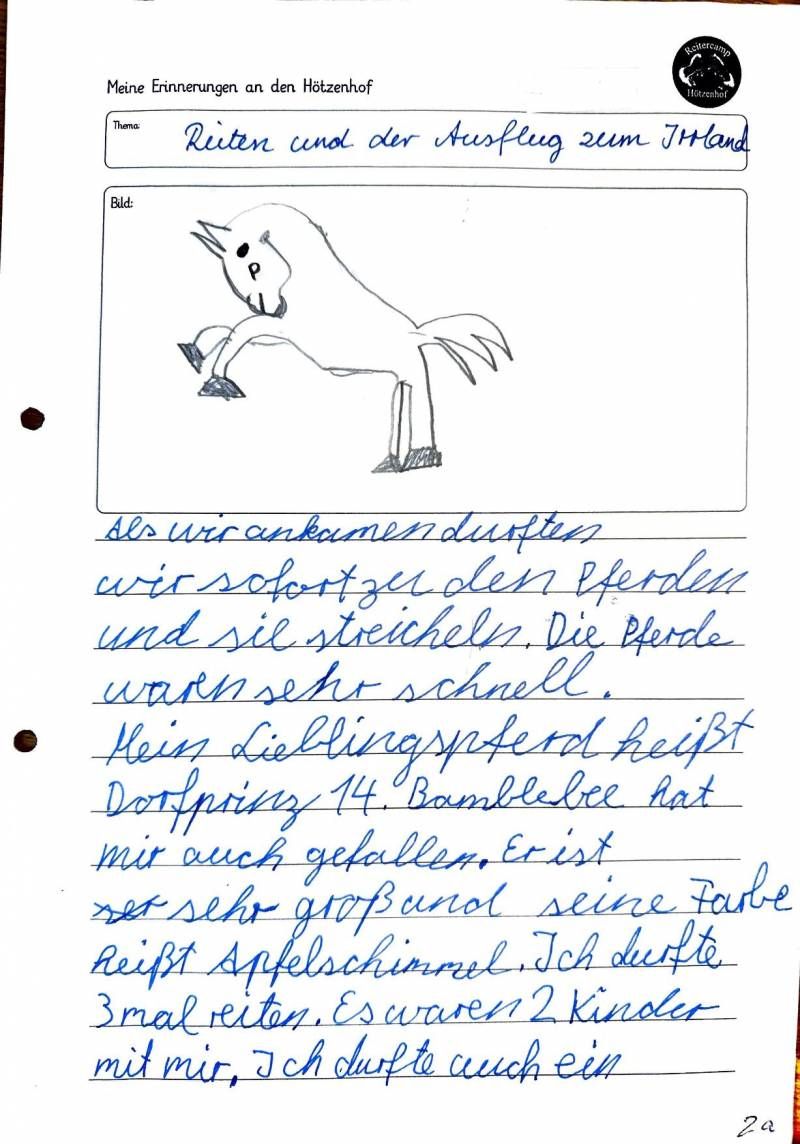 Reitercamp
Hötzenhof
Meine Erinnerungen an den Hötzenhof
Thema: Reiten und der Ausflug zum Irrland
Bild:
P
Als wir ankamen durften
wir sofort zu den Pferden
und sie streicheln. Die Pferde
waren sehr schnell.
Mein Lieblingspferd heißt
Dorfprinz 14. Bamblebee hat
mir auch gefallen. Er ist
sehr groß und seine Farbe
heißt Apfelschimmel. Ich durfte
3 mal reiten. Es waren 2 Kinder
mit mir. Ich durfte auch ein
2a